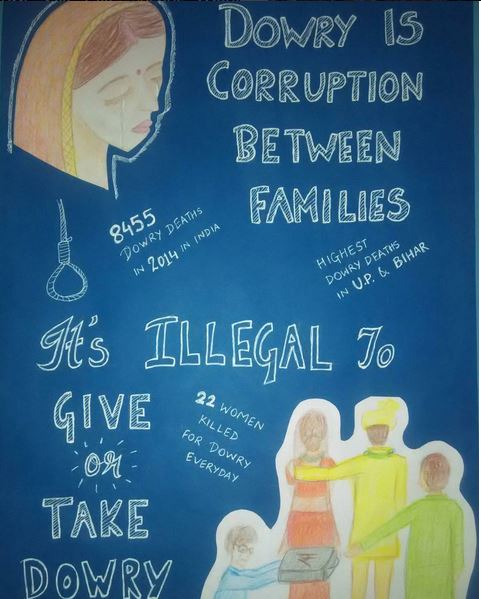 DOWRY IS
CORRUPTION
BETWEEN
FAMILIES
8455
DOWRY DEATHS
IN 2014 IN INDIA
HIGHEST
DOWRY DEATHS
IN U.P. & BIHAR
It's ILLEGAL To
GIVE
or
TAKE
DOWRY
22 WOMEN
KILLED
FOR DOWRY
EVERYDAY
₹